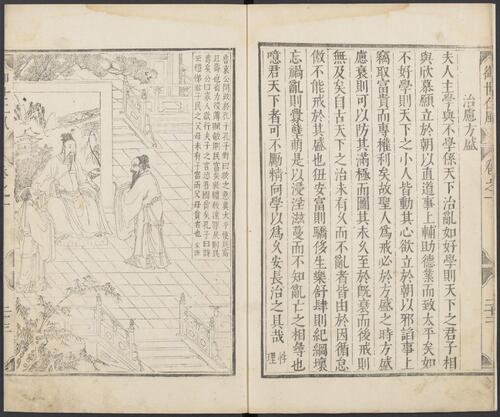 治慮方盛
夫人主學與不學係天下治亂如好學則天下之君子相
與欣慕願立於朝以直道事上輔助德業而致太平矣如
不好學則天下之小人皆動其心欲立於朝以邪諂事上
竊取富貴而專權利矣故聖人為戒必於方盛之時方盛
慮衰則可以防其滿極而圖其永久至於既衰而後戒則
無及矣自古天下之治未有久而不亂者皆由於因循怠
傲不能戒於其盛也狃安富則驕侈生樂舒肆則紀綱壞
忘禍亂則釁孽萌是以浸淫滋蔓而不知亂亡之相尋也
噫君天下者可不勵精向學以為久安長治之具哉 性理
魯哀公問政於孔子孔子對曰政之急莫大乎使民富
且壽也省力役薄賦歛則民富矣敦禮教遠罪戾則民
壽矣公曰寡人欲行夫子之言恐吾國貧矣孔子曰詩
云愷悌君子民之父母未有子富而父母貧者也 家語